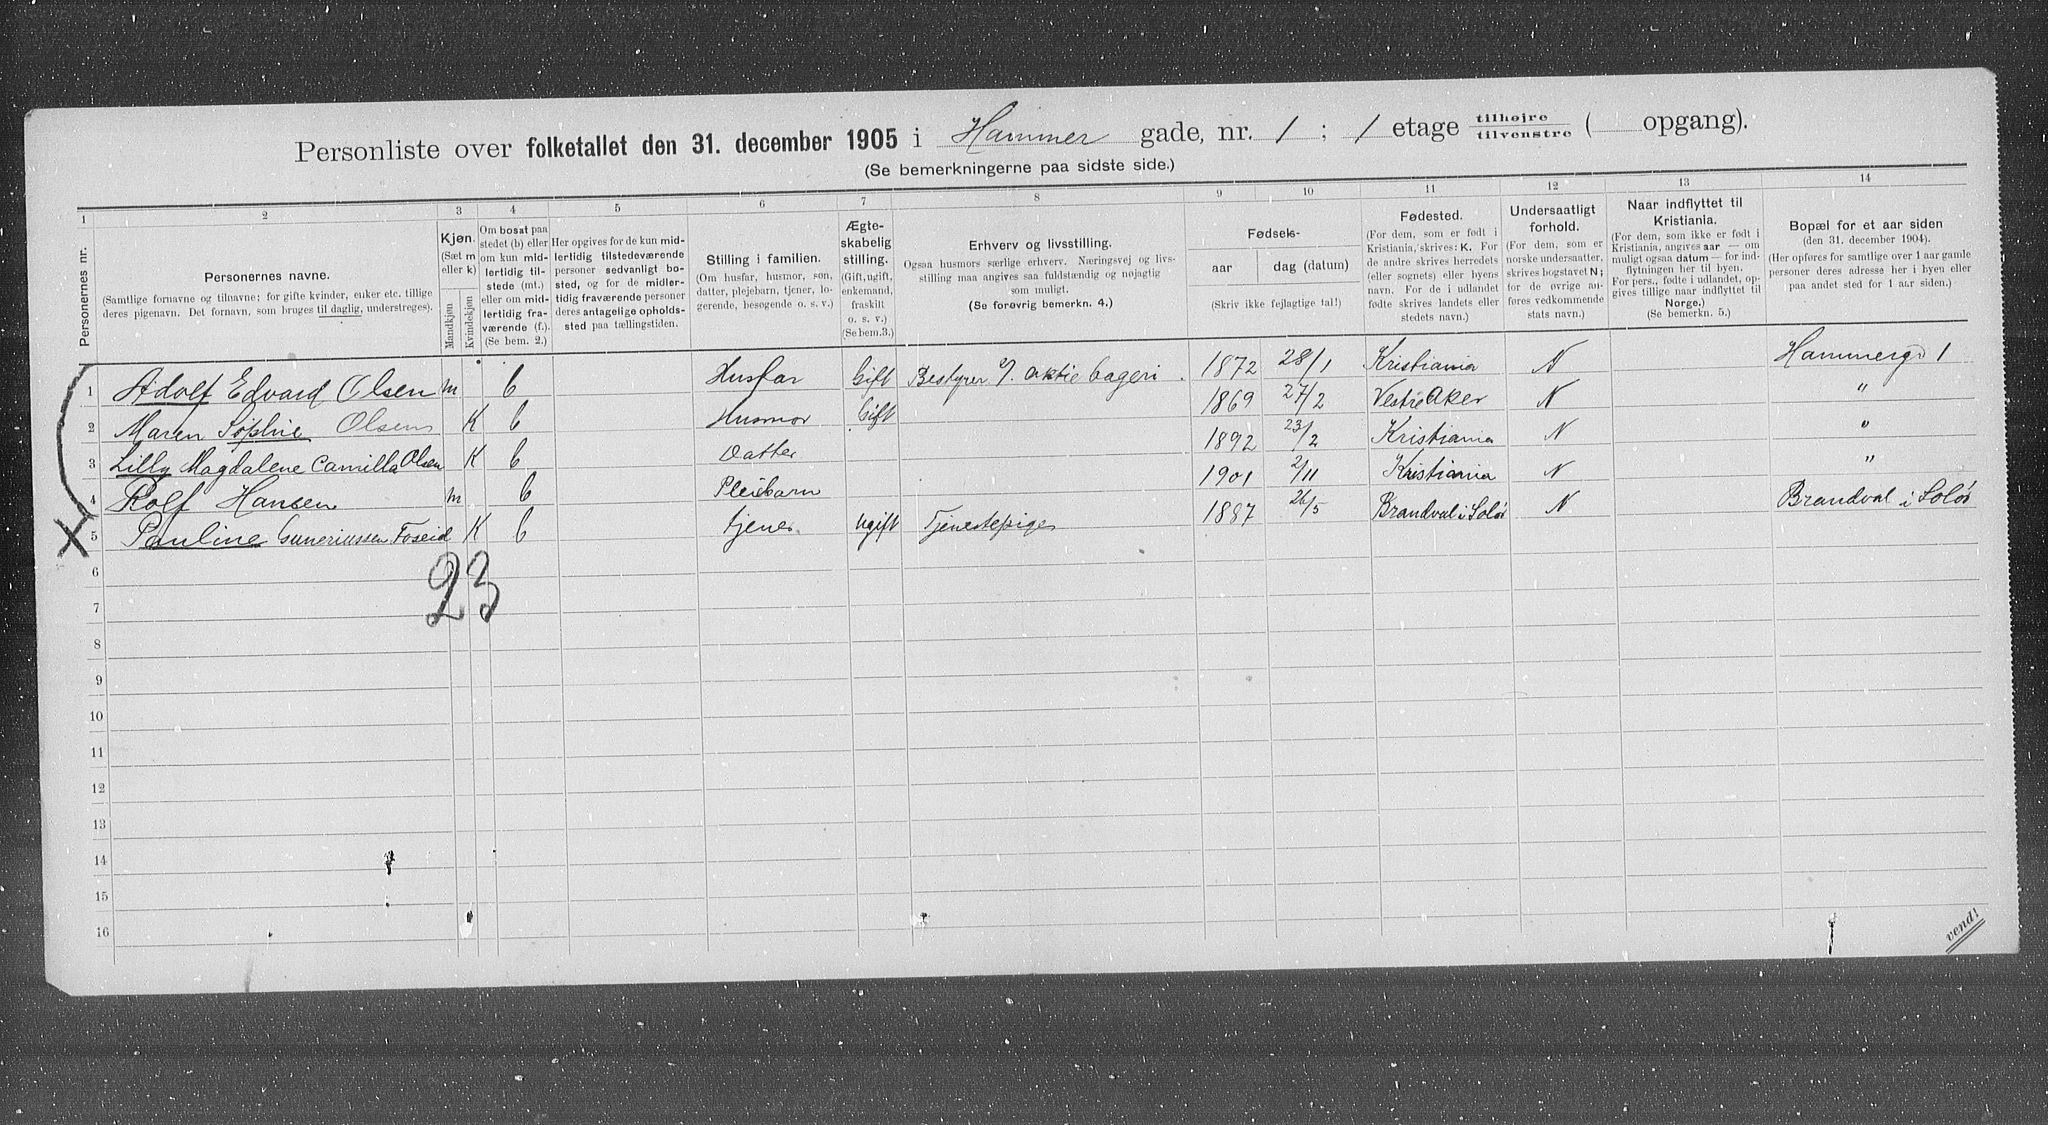 Personliste over folketallet den 31. december 1905 i Hammer gade, nr. 1 ; 1 etage tilhøjre tilvenstre ( opgang).
(Se bemerkningerne paa sidste side.)
1 2 3 4 5 6 7 8 9 10 11 12 13 14
Personernes nr.
Personernes navne.
(Samtlige fornavne og tilnavne; for gifte kvinder, enker etc. tillige
deres pigenavn. Det fornavn, som bruges til daglig, understreges).
Kjøn.
(Sæt m
eller k)
Mandkjøn
Kvindekjøn
Om bosat paa
stedet (b) eller
om kun mid-
lertidig til-
stede (mt.)
eller om mid-
lertidig fra-
værende (f.).
(Se bem. 2.)
Her opgives for de kun mid-
lertidig tilstedeværende
personer sedvanligt bo-
sted, og for de midler-
tidig fraværende personer
deres antagelige opholds-
sted paa tællingstiden.
Stilling i familien.
(Om husfar, husmor, søn,
datter, plejebarn, tjener, lo-
gerende, besøgende o. s. v.)
Ægte-
skabelig
stilling.
(Gift, ugift,
enkemand,
fraskilt
o. s. v.)
(Se bem.3.)
Erhverv og livsstilling.
Ogsaa husmors særlige erhverv. Næringsvej og livs-
stilling maa angives saa fuldstændig og nøjagtig
som muligt.
(Se forøvrig bemerkn. 4.)
Fødsels-
aar
dag (datum)
(Skriv ikke fejlagtige tal!)
Fødested.
(For dem, som er født i
Kristiania, skrives: K. For
de andre skrives herredets
(eller sognets) eller byens
navn. For de i udlandet
fødte skrives landets eller
stedets navn.)
Undersaatligt
forhold.
(For dem, som er
norske undersaatter,
skrives bogstavet N;
for de øvrige an-
føres vedkommende
stats navn.)
Naar indflyttet til
Kristiania.
(For dem, som ikke er født i
Kristiania, angives aar — om
muligt ogsaa datum — for ind-
flytningen her til byen.
For pers., fødte i udlandet, op-
gives tillige naar indflyttet til
Norge.)
(Se bemerkn. 5.)
Bopæl for et aar siden
(den 31. december 1904).
(Her opføres for samtlige over 1 aar gamle
personer deres adresse her i byen eller
paa andet sted for 1 aar siden.)
1 Adolf Edvard Olsen m b Husfar Gift Bestyrer af aktie bageri. 1872 28/1 Kristiania N Hammerg 1
2 Maren Sophie Olsen K b Husmor Gift 1869 27/2 Vestre Aker N "
3 Lilly Magdalene Camilla Olsen K b Datter 1892 23/2 Kristiania N "
4 Rolf Hansen m b Pleiebarn 1901 2/11 Kristiania N "
5 Pauline Guneriussen Foseid K b tjener ugift Tjenestepige 1887 26/5 Brandval i Solør N Brandval i Solør
23
6
7
8
9
10
11
12
13
14
15
16
vend!